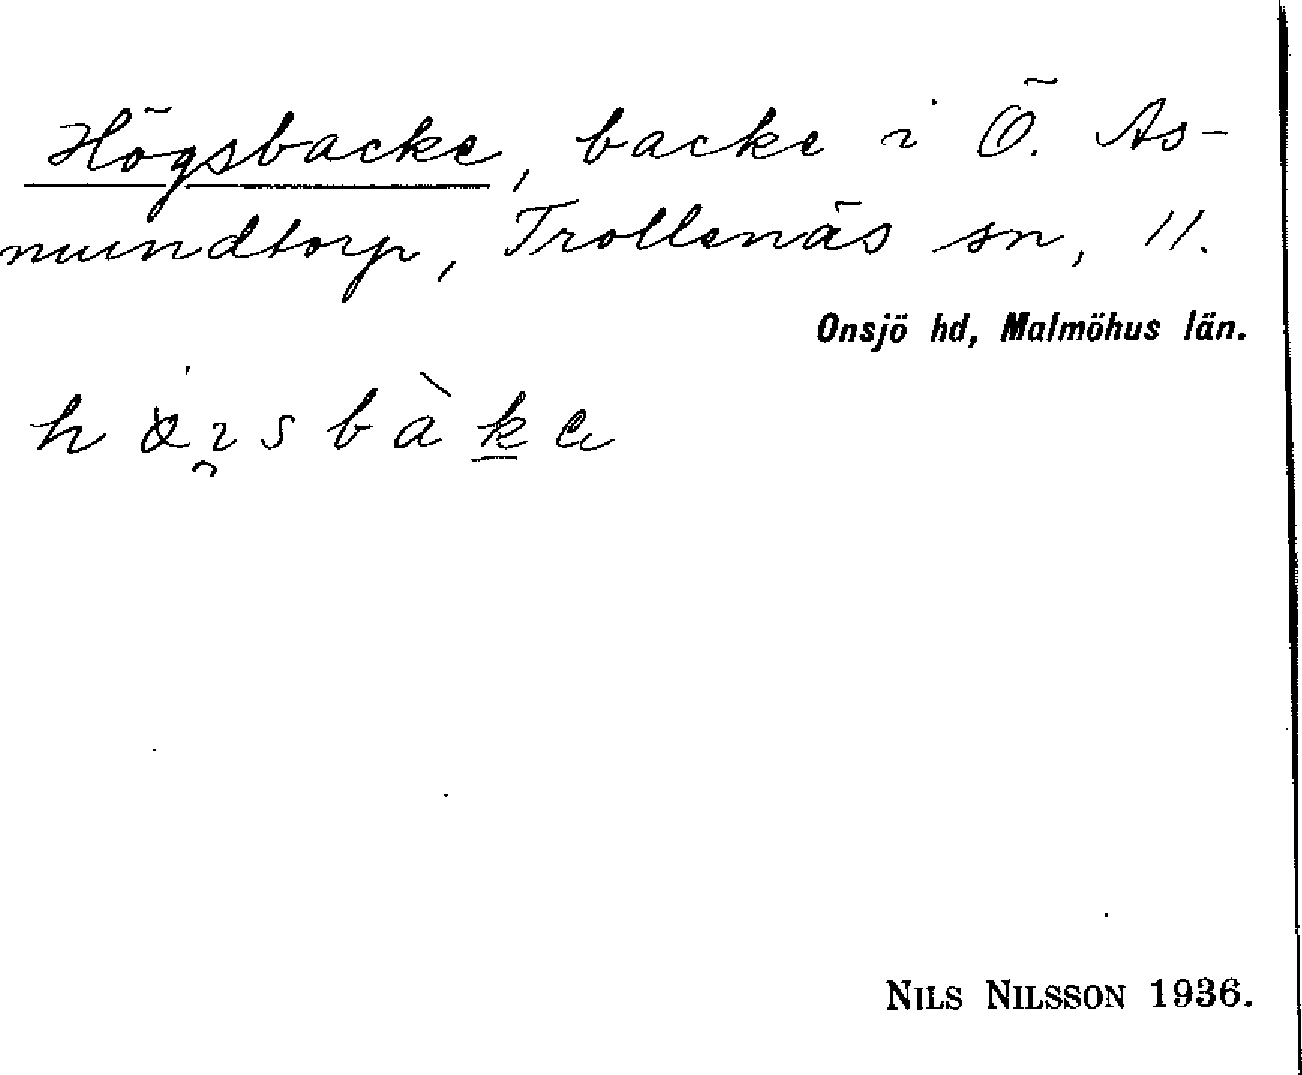 Högsbacke, backe i Ö. As-
mundtorp, Trollenäs sn, 11.
Onsjö hd, Malmöhus län.
NILS NILSSON 1936.